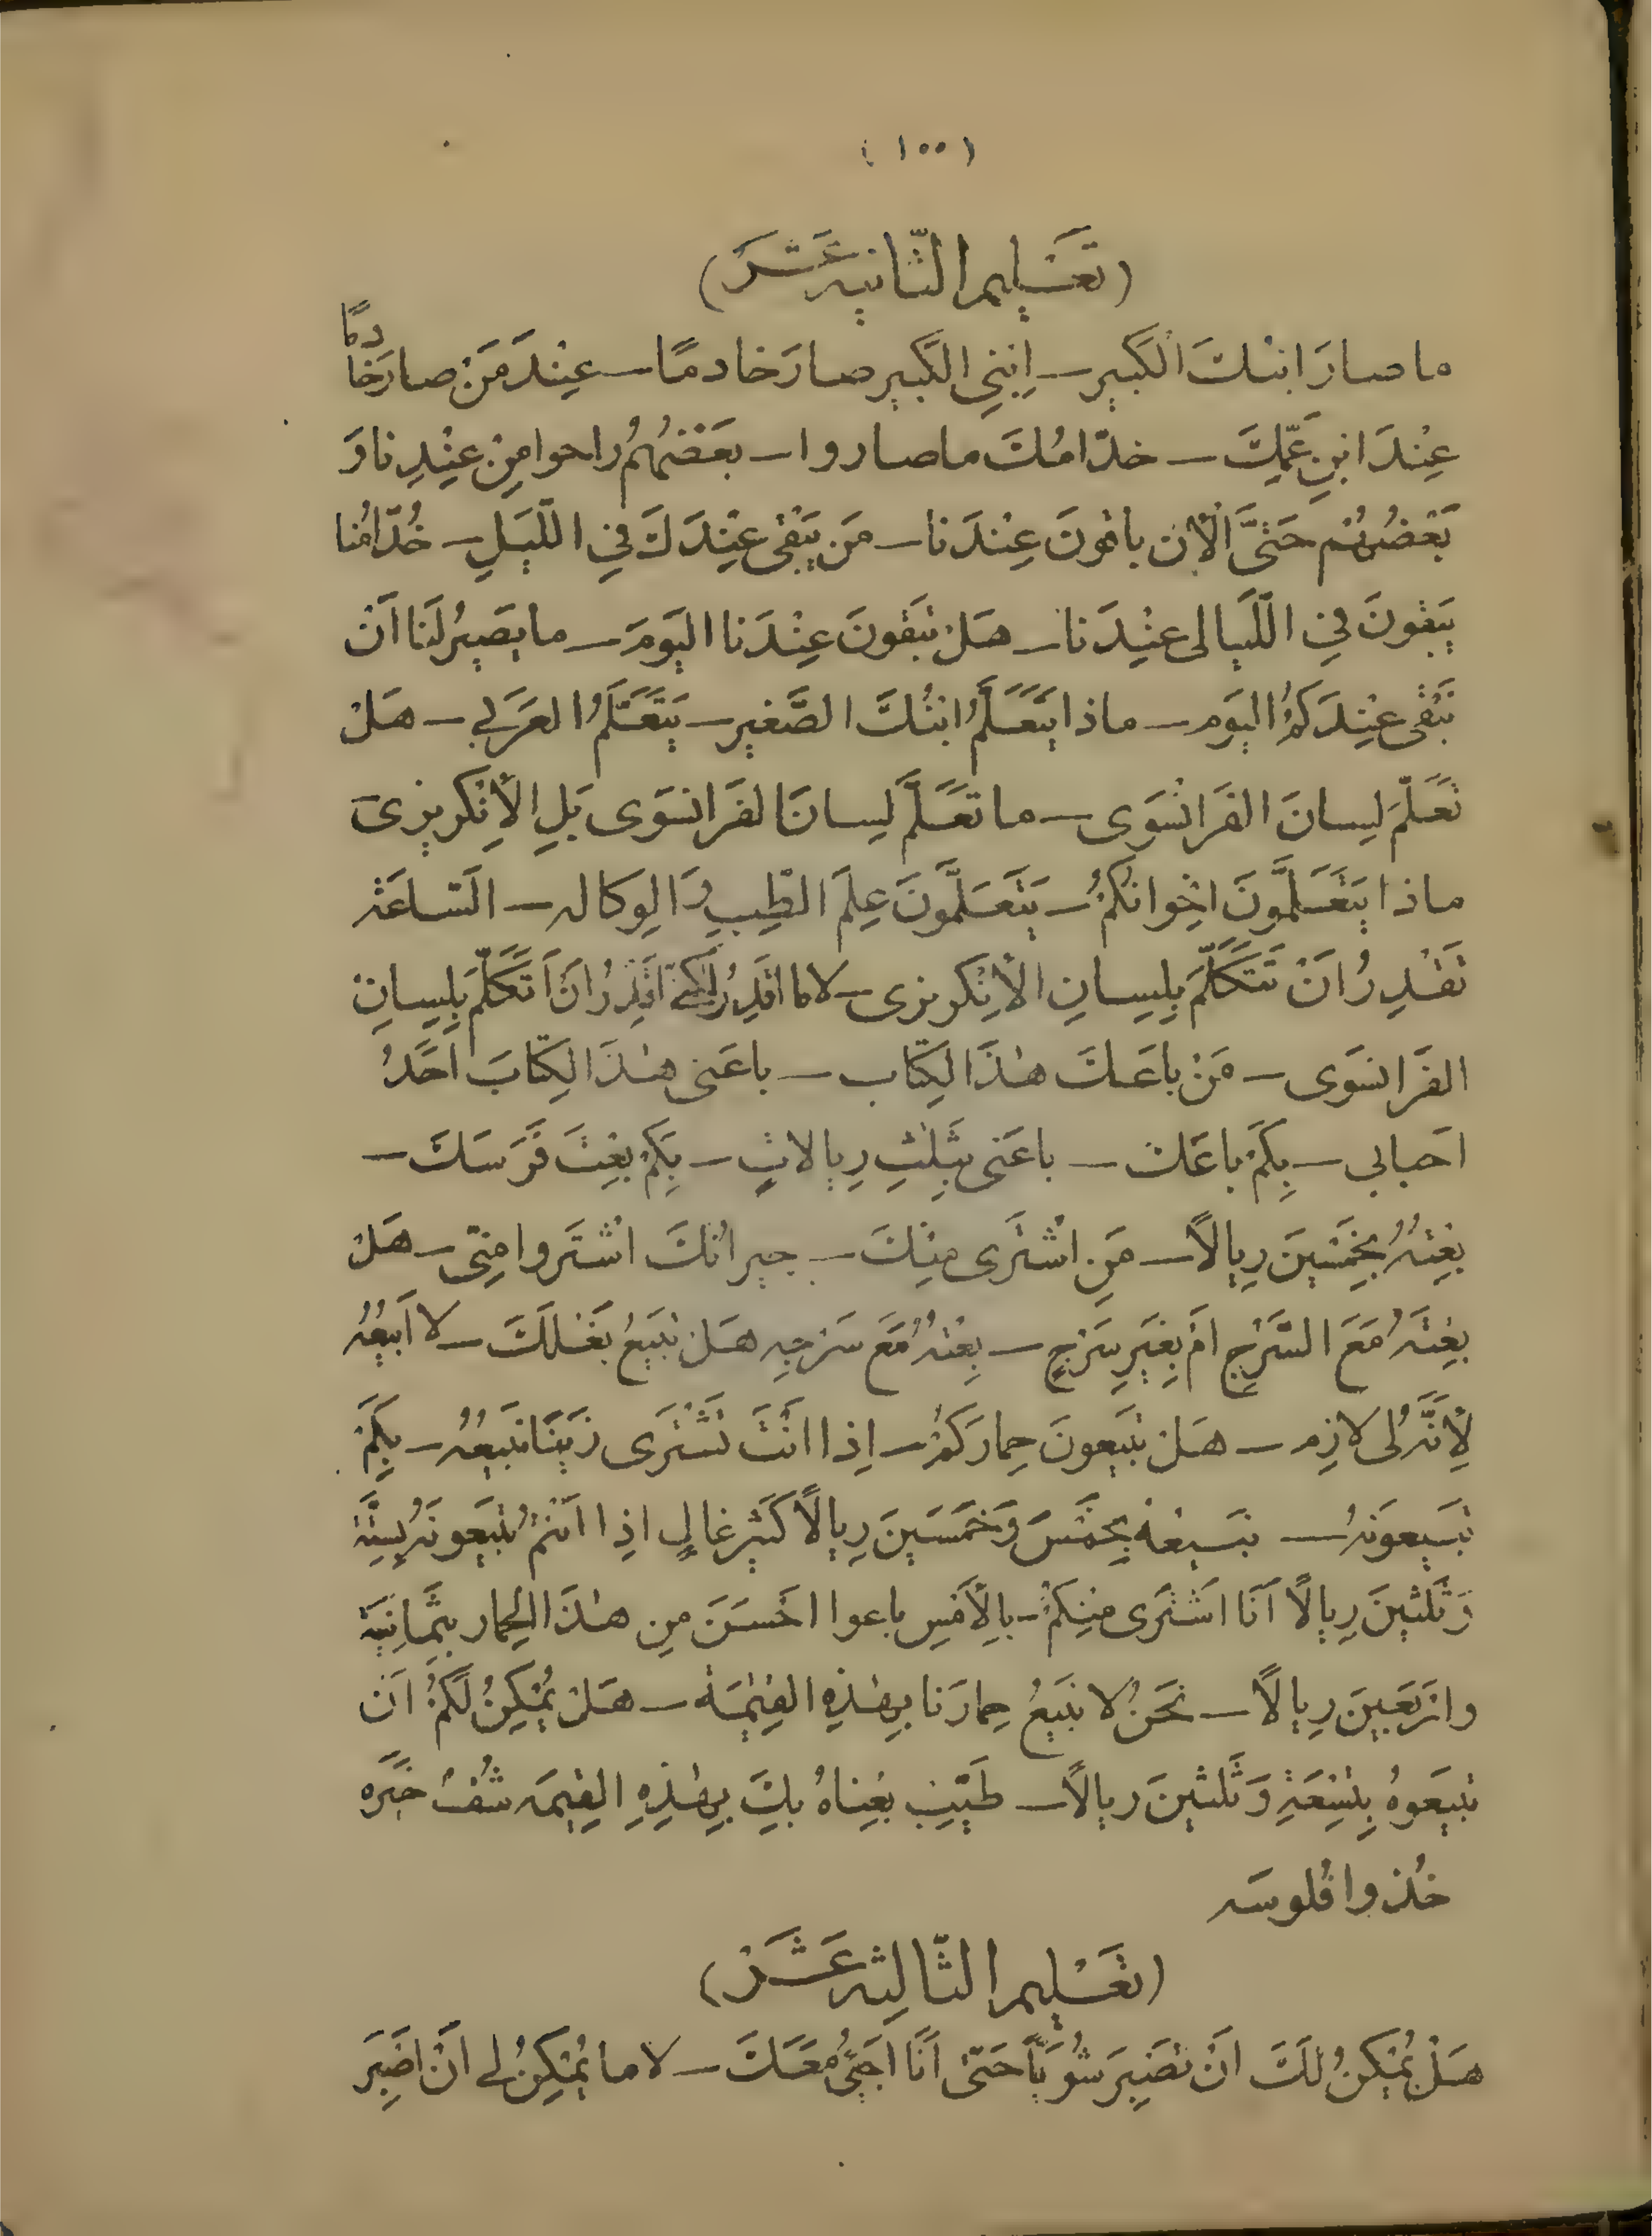 (١٠٠)
(تَعْلِيمِ الثَّانِيه عَشَرَ)
ما صارَ ابنُكَ الكَبِيرِ — اِبْنِي الكَبِيرِ صارَ خادمًا — عِنْدَ مَنْ صارَ خادِمًا
عِنْدَ ابنِ عَمِّكَ — خدّامُكَ ما صاروا — بَعْضُهُمُ راحوا مِنْ عِنْدِنا وَ
بَعْضُهُمْ حَتَّى الْآن باقونَ عِنْدَنا — مَن يَبْقى عِنْدَكَ فِي اللَّيلِ — خُدّامُنا
يَبْقونَ فِي اللَّيالى عنْدَنا — هَلْ تَبْقونَ عِنْدَنا اليَومَ — ما يَصِيرُ لَنا اَنْ
نَبْقى عِنْدَكُمُ اليَوم — ماذا يَتَعَلَّمُ ابنُكَ الصَّغيرِ — يَتَعَلَّمُ العَرَبي — هَلْ
تَعَلَّمَ لِسانَ الفَرَانْسَوى — ما تَعَلَّمَ لِسانَ الفَرَانسَوى بَلِ الْأِنْكريزىَ
ماذا يَتَعَلَّمُونَ اخْوانُكُمْ — يَتَعَلَّمُونَ عِلمَ الطِّبِ وَ الوِكاله — السّاعَة
تَقْدِرُ اَنْ تَتَكَلَّمَ بِلِسانِ الْأِنْكَريزى — لا ما اقدِرُ لكنّ اَقْدِرُ اَنْ اَتَكَلَّمَ بِلِسانِ
الفَرَانسَوى — مَنْ باعَكَ هٰذَا الكِتاب — باعَنى هٰذَا الكِتابَ اَحَدُ
احَبابي — بِكَمْ باعَك — باعَنى بثَلٰثِ رِيالاتٍ — بِكَمْ بِعْتَ فَرَسَكَ —
بِعْتُهُ بِخَمْسِينَ رِيالاً — مَنِ اشْتَرى مِنْكَ — جِيرانُكَ اشْتَروا مِنّى — هَلْ
بِعْتَهُ مَعَ السَّرْجِ اَم بِغَيرِ سَرْجٍ — بِعْتُهُ مَعَ سَرْجِه هَل تَبيعُ بَغْلَكَ — لا اَبيعُه
لِأَنَّهُ لى لازِم — هَل تَبيعونَ حِمارَكُمْ — اِذا اَنْتَ تَشْتَرى زَيْنًا نَبيعُهُ — بِكَمْ
تَبيعونَهُ — نَبيعُهُ بِخَمْسَ وَخَمْسينَ رِيالاً كَثير غالٍ اِذا اَنْتُمْ تَبيعونَهُ بِسِتَّة
وَثَلٰثينَ رِيالاً اَنَا اَشْتَرى مِنْكُمْ — بِالْأَمْسِ باعوا احْسَنَ مِن هٰذَا الحِمار بِثَمانِيَة
وارْبَعينَ رِيالاً — نَحْنُ لا نَبيعُ حِمارَنا بِهٰذِهِ القِيْمَة — هَل يُمْكِنُ لَكُمْ اَن
تَبيعَوهُ بِتِسْعَةِ وَثَلٰثينَ ريالاً — طَيِّب بِعْناهُ بِكَ بِهٰذِهِ القِيمَه شُفْ خَيرَه
خُذوا فُلوسَه
(تَعْلِيمِ الثَّالِثه عَشَرَ)
هَلْ يُمْكِنُ لَكَ اَنْ تَصْبِرَ شُوَيّاً حَتىّ اَنَا اَجِئُ مَعَكَ — لا ما يُمْكِنُ لى اَنْ اَصْبِرَ